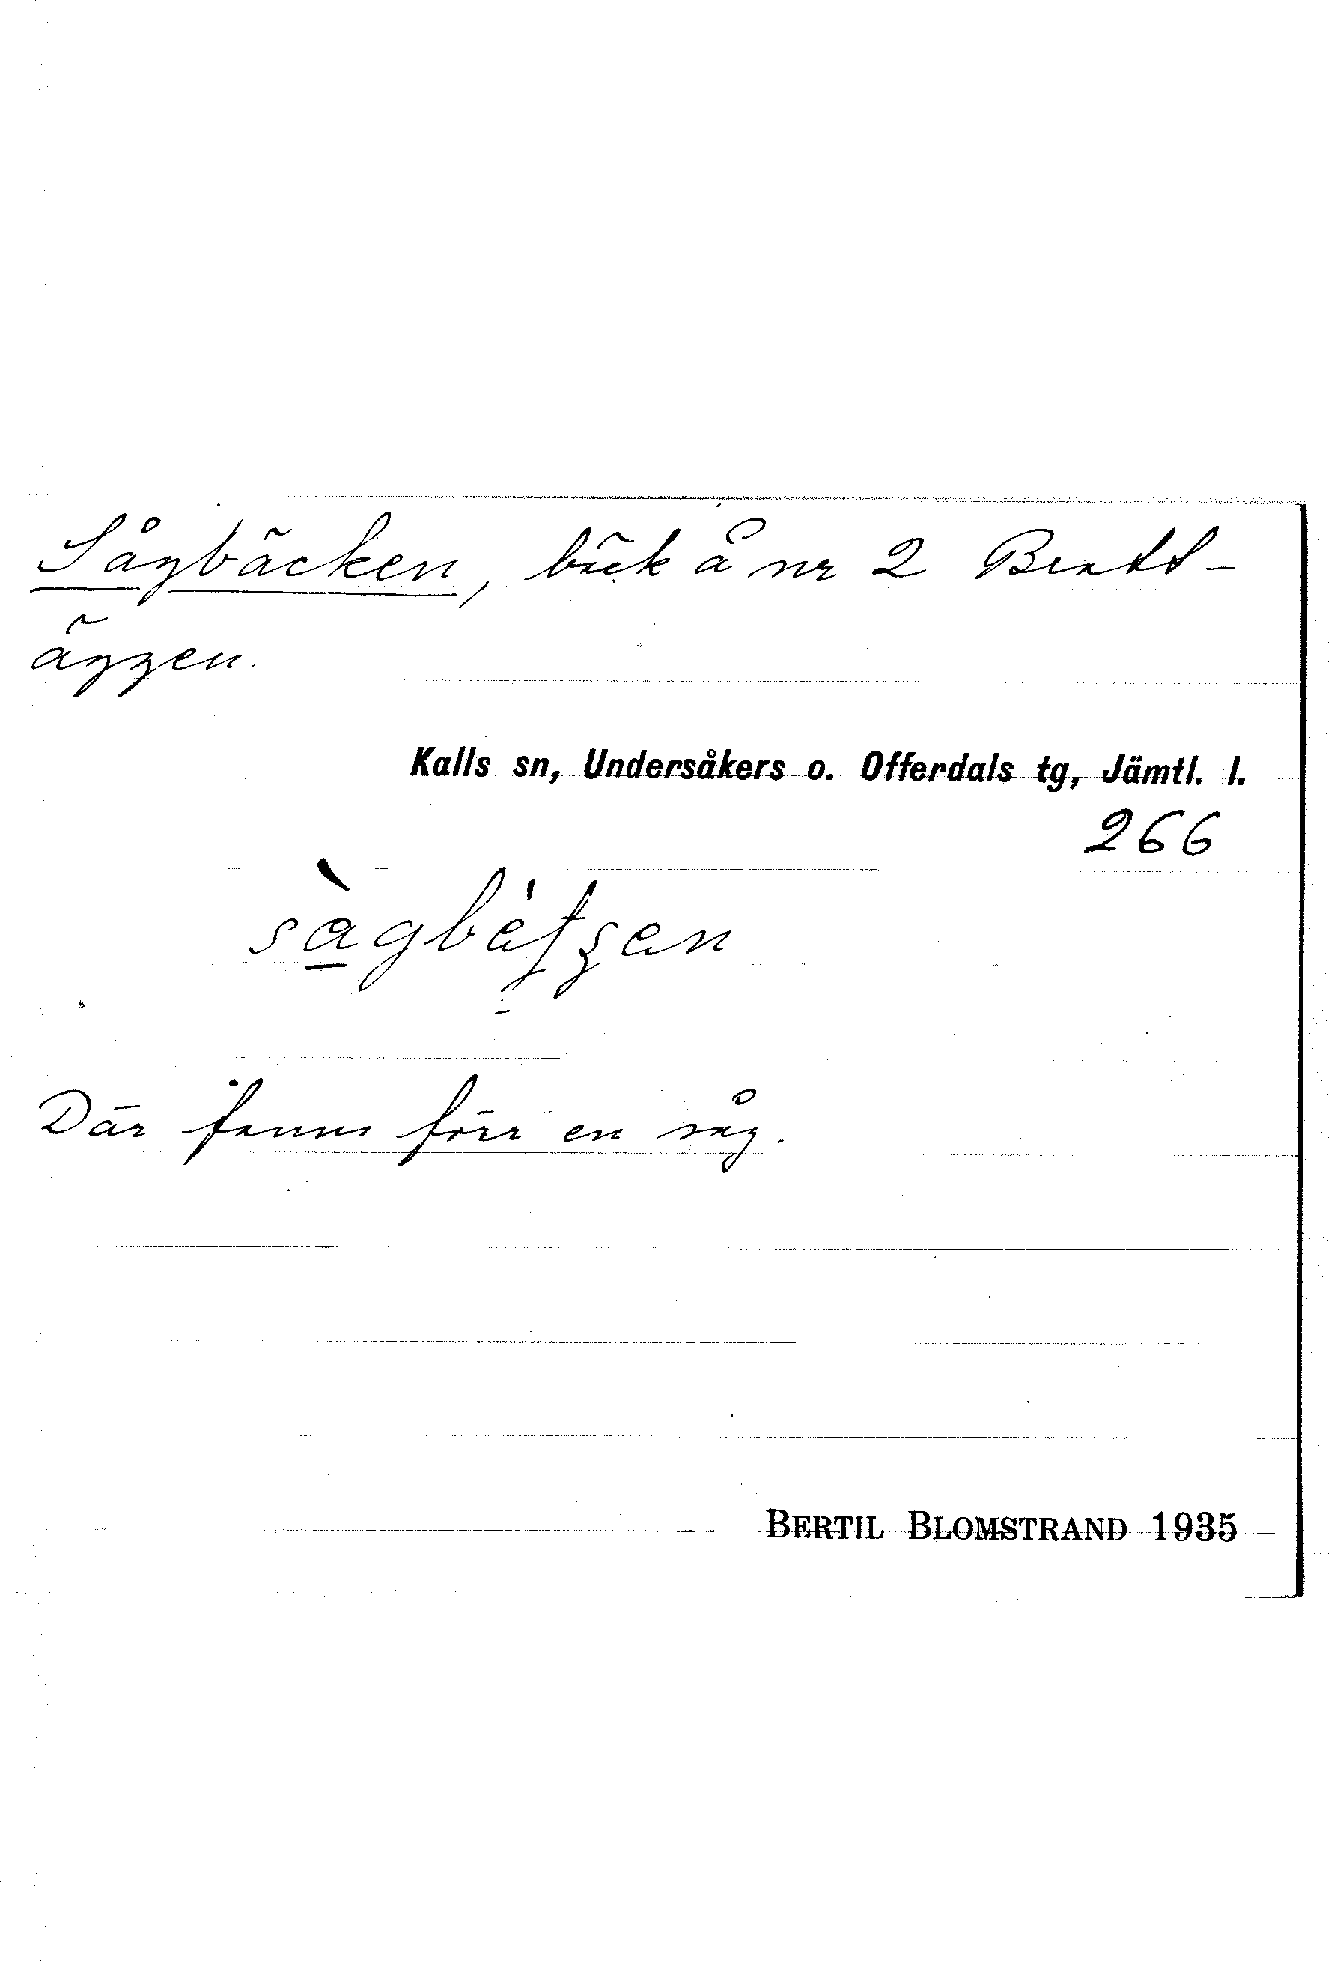 Sågbäcken, bäck å nr 2 Bratt-
äggen.
Kalls sn, Undersåkers o. Offerdals tg, Jämtl. l.
266
Där fanns förr en såg.
BERTIL BLOMSTRAND 1935